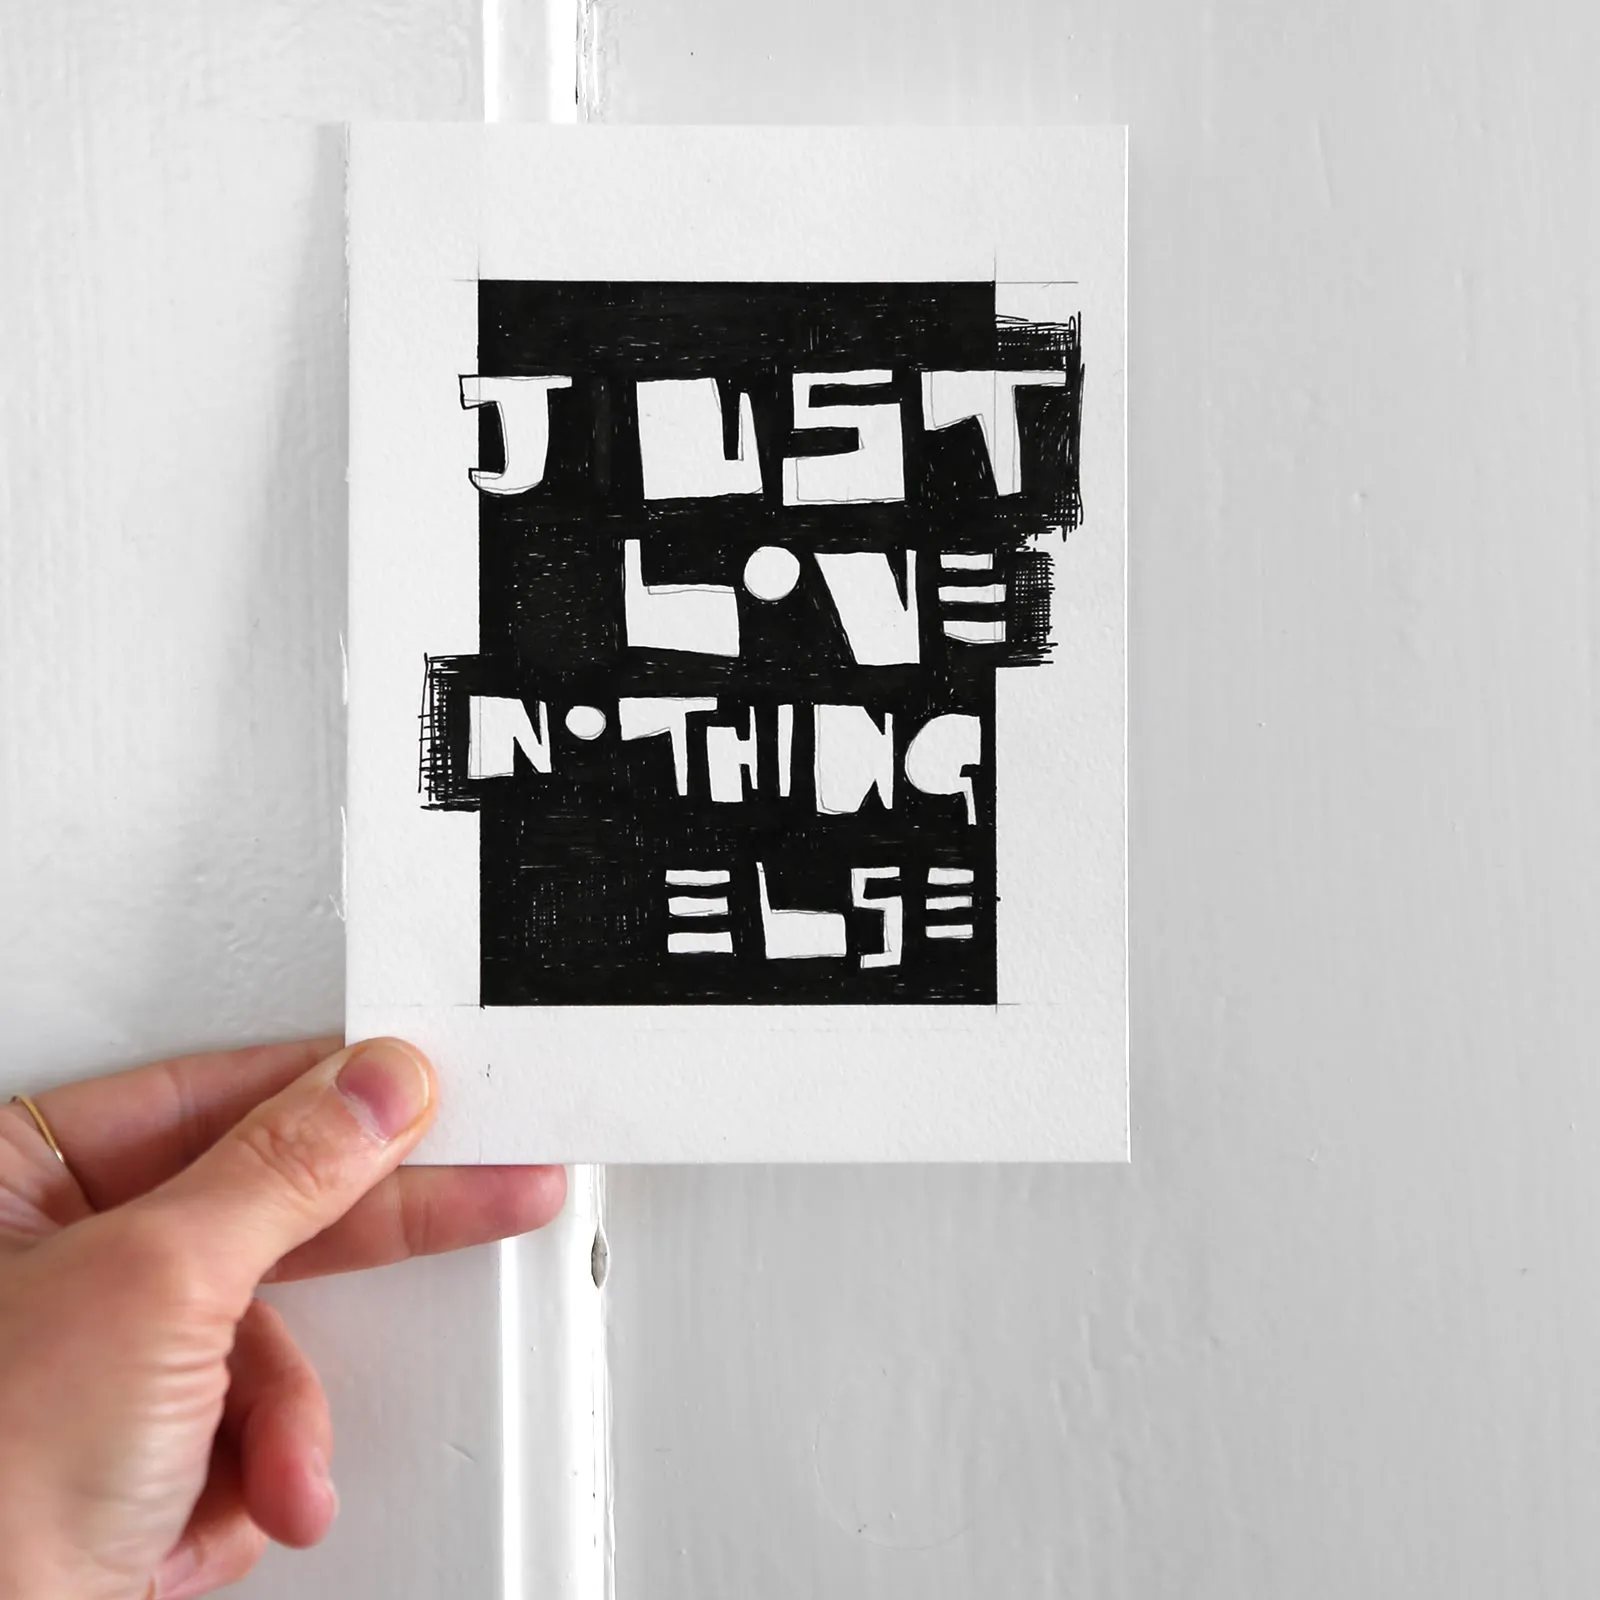 JUST
LOVE
NOTHING
ELSE